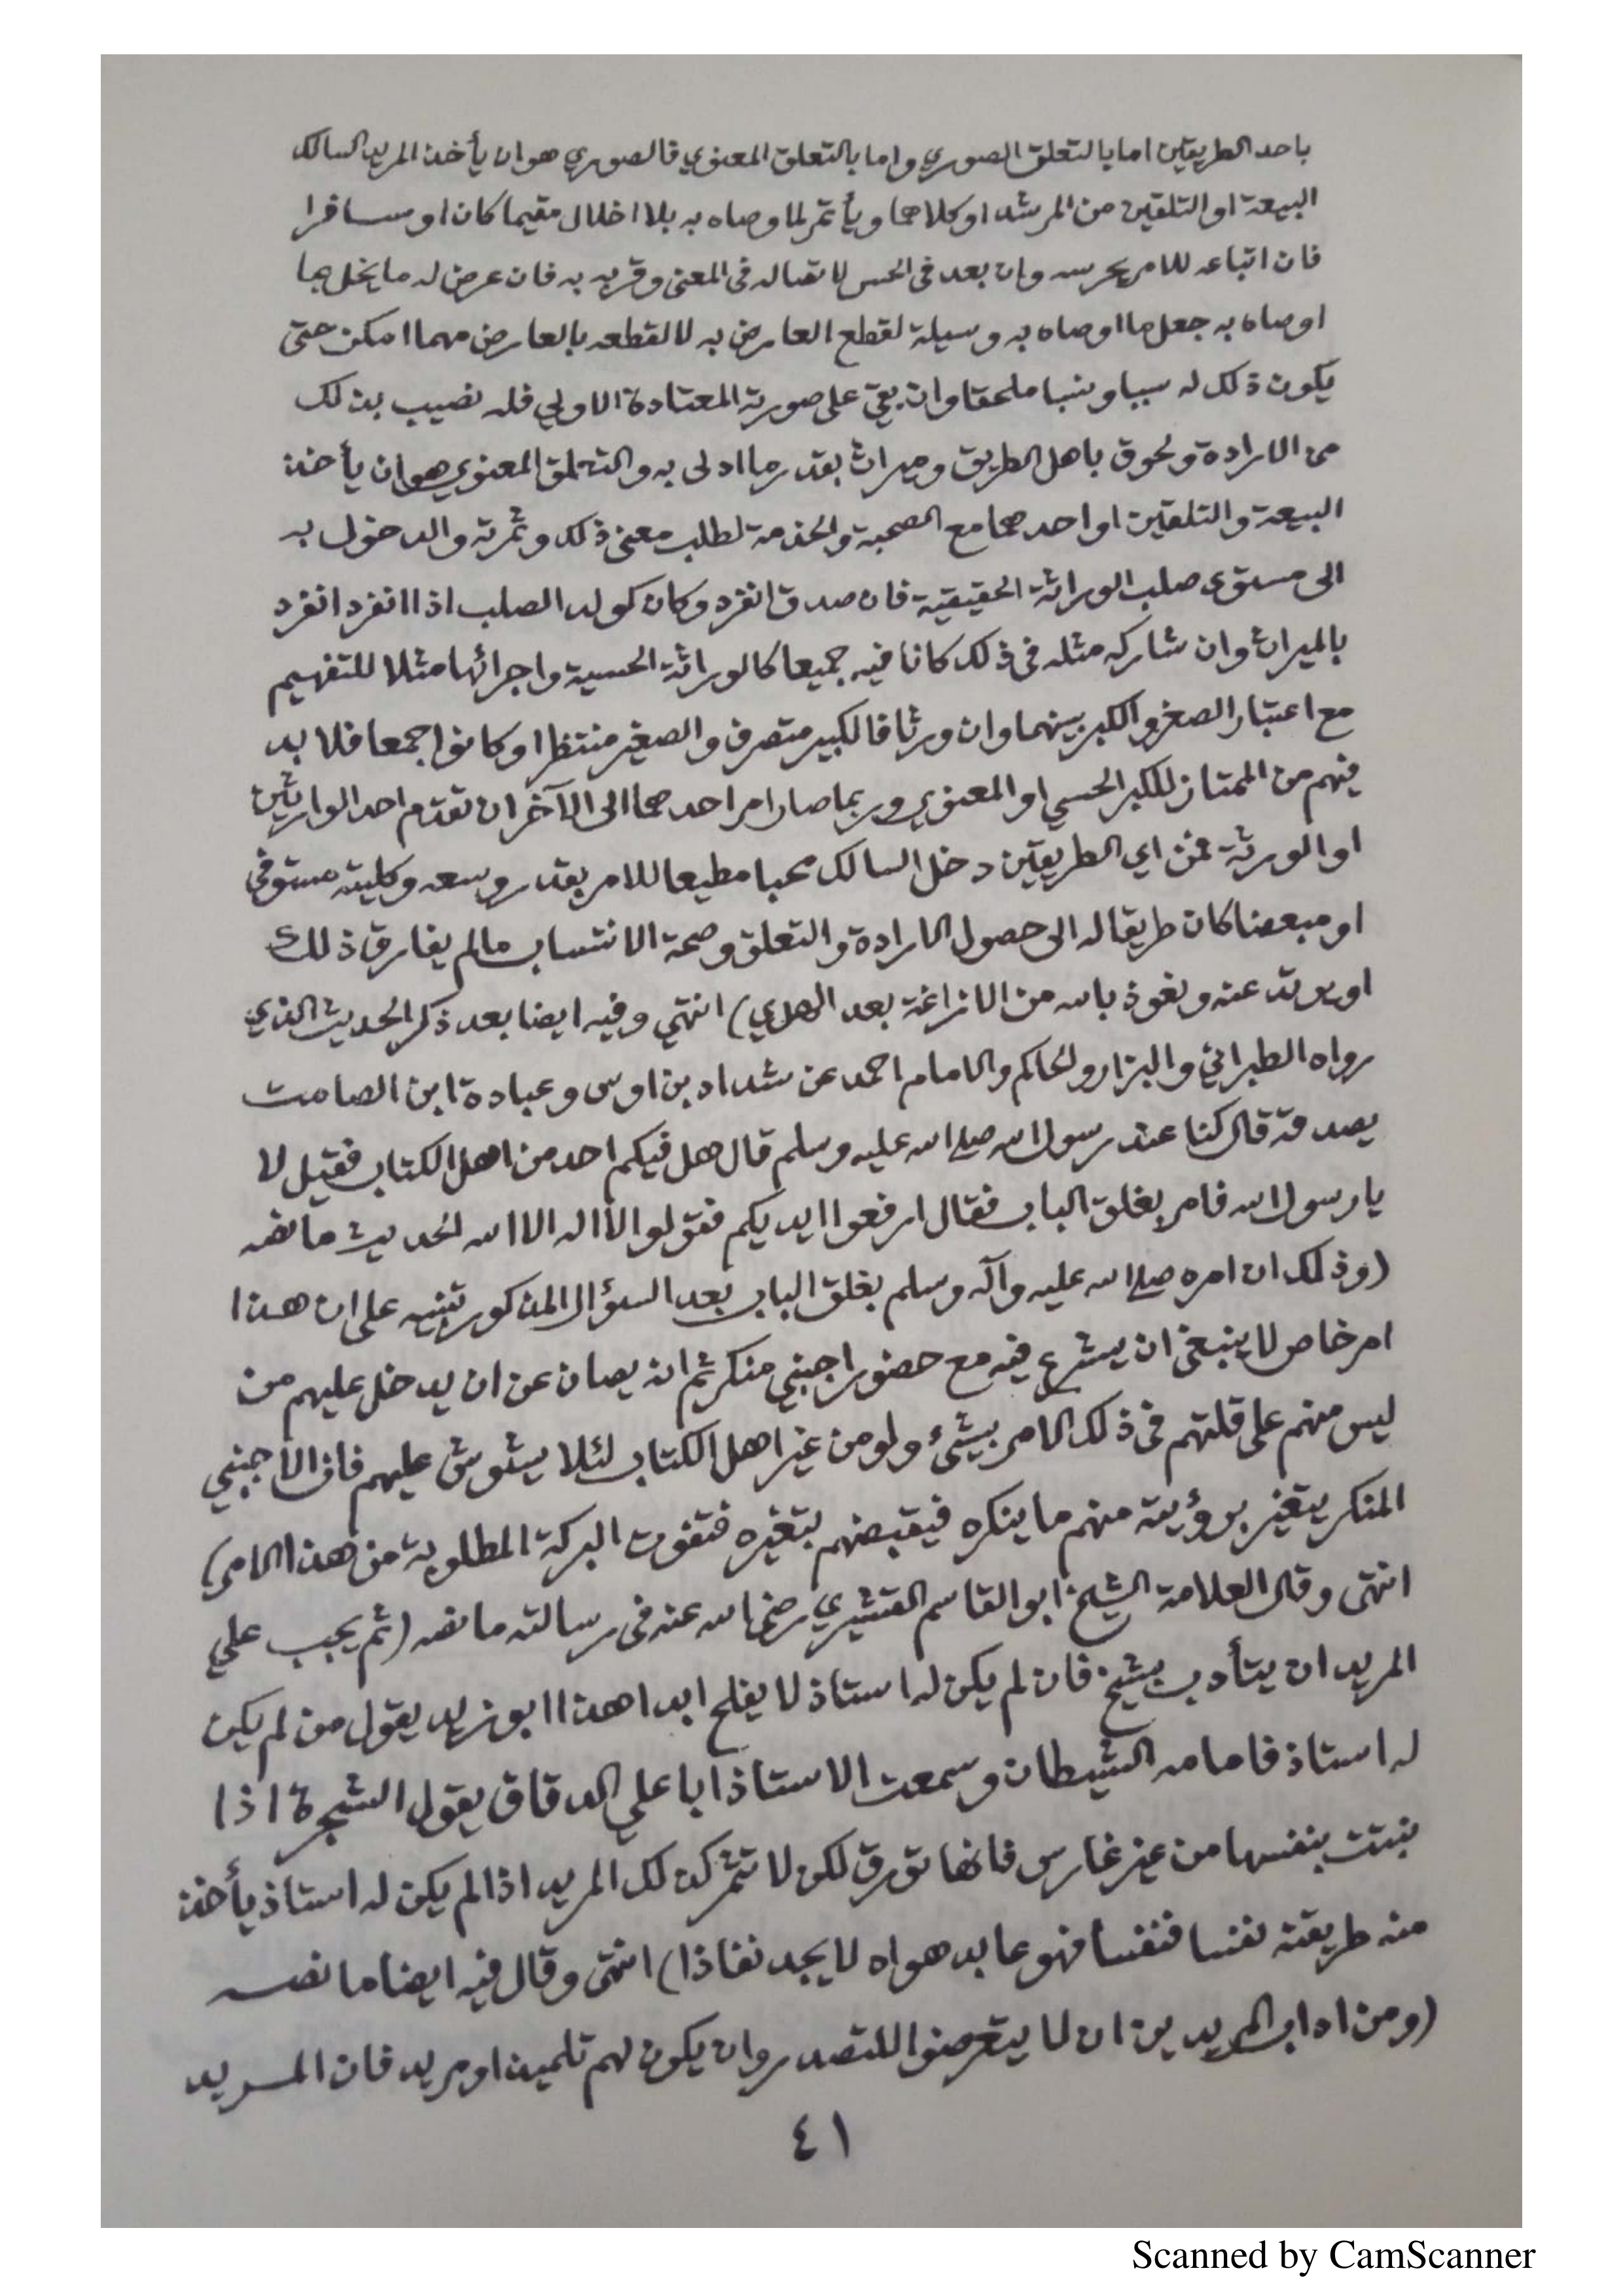 باحد الطريقين اما بالتعلق الصوري واما بالتعلق المعنوي فالصوري هو ان يأخذ المريد السالك
البيعة او التلقين من المرشد او كلاهما ويأتمر لما وصاه به بلا اخلال مقيما كان او مسافرا
فان اتباعه للامر يحرسه وان بعد في الحس لاتصاله في المعنى وقربه به فان عرض له ما يخل بما
اوصاه به جعل ما اوصاه به وسيلة لقطع العارض به لا لقطعه بالعارض مهما امكن حتى
يكون ذلك له سببا ونسبا ملحقا وان بقي على صورته المعتادة الاولى فله نصيب بذلك
من الارادة ولحوق باهل الطريق وميراث بقدر ما ادلى به والتعلق المعنوي هو ان يأخذ
البيعة والتلقين او احدهما مع الصحبة والخدمة لطلب معنى ذلك وثمرته والدخول به
الى مستوى صلب الوراثة الحقيقية فان صدق انفرد وكان كولد الصلب اذا انفرد انفرد
بالميراث وان شاركه مثله في ذلك كانا فيه جميعا كالوراثة الحسية واجرائها مثلا للتفهيم
مع اعتبار الصغر والكبر بينهما وان ورثا فالكبير متصرف والصغير منتظر او كانوا جمعا فلا بد
فيهم من الممتاز للكبر الحسي او المعنوي وربما صار امر احدهما الى الآخر ان تقدم احد الوارثين
او الورثة فمن اي الطريقين دخل السالك محبا مطيعا للامر بقدر وسعه وكليته مستوفي
او مبعضا كان طريقا له الى حصول الارادة والتعلق وصحة الانتساب ما لم يفارق ذلك
او يرتد عنه ونعوذ بالله من الازاغة بعد الهدي) انتهي وفيه ايضا بعد ذكر الحديث الذي
رواه الطبراني والبزار والحاكم والامام احمد عن شداد بن اوس وعبادة ابن الصامت
يصدقه قال كنا عند رسول الله صلى الله عليه وسلم قال هل فيكم احد من اهل الكتاب فقيل لا
يا رسول الله فامر بغلق الباب فقال ارفعوا ايديكم فقولوا لا اله الا الله الحديث ما نصه
(وذلك ان امره صلى الله عليه وآله وسلم بغلق الباب بعد السؤال المذكور تنبيه على ان هذا
امر خاص لا ينبغي ان يشرع فيه مع حضور اجنبي منكر ثم انه يصان عن ان يدخل عليهم من
ليس منهم على قلتهم في ذلك الامر بشيء ولو من غير اهل الكتاب لئلا يشوش عليهم فان الاجنبي
المنكر يتغير برؤيته منهم ما ينكره فيقبضهم بتغيره فتفوت البركة المطلوبة من هذا الامر)
انتهى وقال العلامة الشيخ ابو القاسم القشيري رضي الله عنه في رسالته ما نصه (ثم يجب علي
المريد ان يتأدب بشيخ فان لم يكن له استاذ لا يفلح ابدا هذا ابو يزيد يقول من لم يكن
له استاذ فامامه الشيطان وسمعت الاستاذ ابا علي الدقاق يقول الشجرة اذا
نبتت بنفسها من غير غارس فانها تورق لكن لا تثمر كذلك المريد اذا لم يكن له استاذ يأخذ
منه طريقته نفسا فنفسا فهو عابد هواه لا يجد نفاذا) انتهى وقال فيه ايضا ما نصه
(ومن اداب المريدين ان لا يتعرضوا للتصدر وان يكون لهم تلميذ او مريد فان المريد
٤١
Scanned by CamScanner